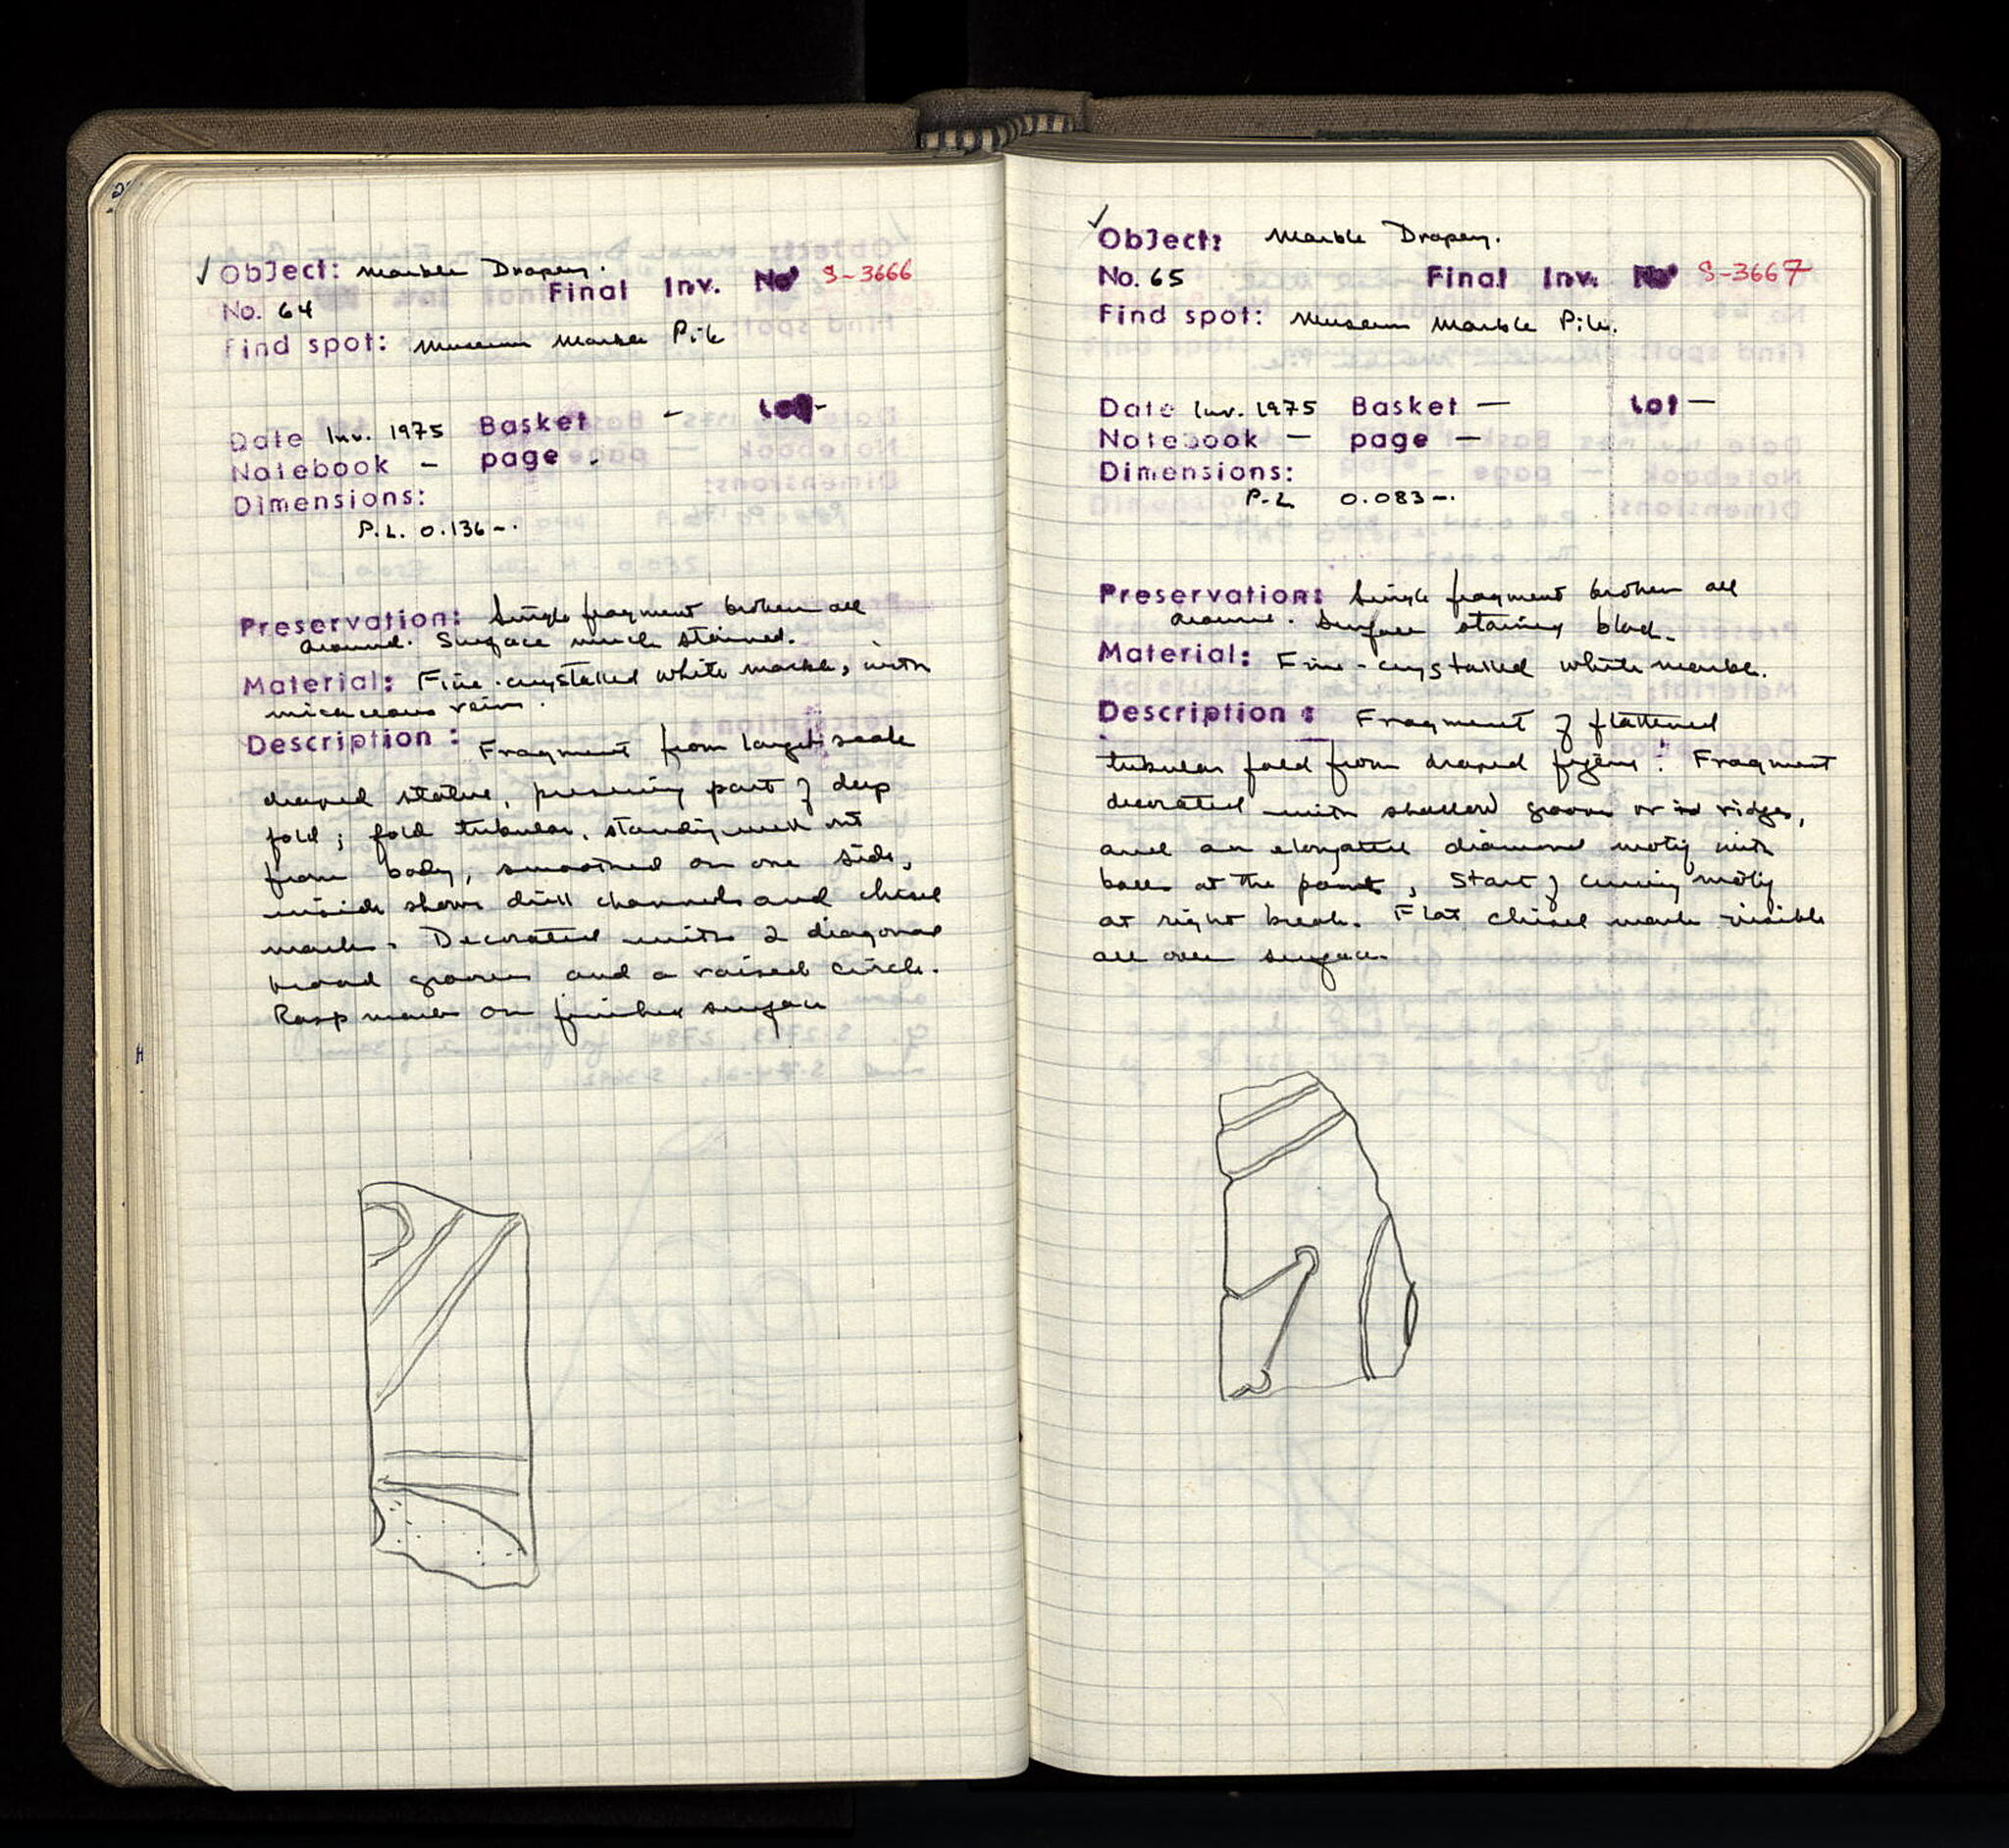 ✓ Object: Marble Drapery.
Final Inv. No S-3666
No. 64
Find spot: Museum Marble Pile
Date Inv. 1975 Basket - Lot-
Notebook - page -
Dimensions:
P.L. 0.136-.
Preservation: Single fragment broken all
around. Surface much stained.
Material: Fine-crystalled white marble, with
micaceous veins.
Description: Fragment from large scale
draped statue, preserving part of deep
fold; fold tubular, standing well out
from body, smoothed on one side,
inside shows drill channels and chisel
marks. Decorated with 2 diagonal
broad grooves and a raised circle.
Rasp marks on finished surface
✓ Object: Marble Drapery.
No. 65 Final Inv. No S-3667
Find spot: Museum Marble Pile.
Date Inv. 1975 Basket — Lot —
Notebook — page —
Dimensions:
P.L 0.083-.
Preservation: Single fragment broken all
around. Surface staining black.
Material: Fine-crystalled white marble.
Description: Fragment of flattened
tubular fold from draped figure. Fragment
decorated with shallow grooves or ridges,
and an elongated diamond motif with
balls at the points, start of curving motif
at right break. Flat chisel marks visible
all over surface.